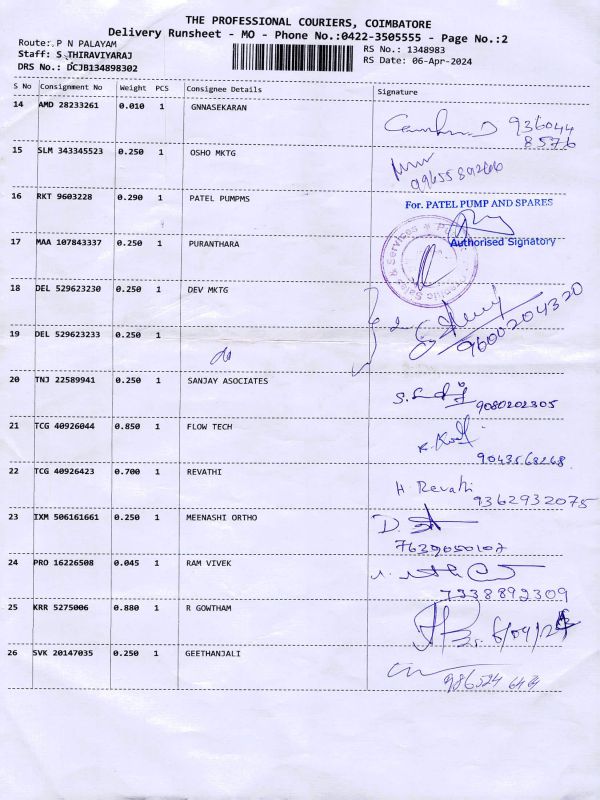 THE PROFESSIONAL COURIERS, COIMBATORE
Delivery Runsheet - MO - Phone No.:0422-3505555 - Page No.:2
Route:. P N PALAYAM
Staff: S THIRAVIYARAJ
DRS No.: DCJB134898302
RS No.: 1348983
RS Date: 06-Apr-2024
S No Consignment No Weight PCS Consignee Details Signature
14 AMD 28233261 0.010 1 GNNASEKARAN
936044
8576
15 SLM 343345523 0.250 1 OSHO MKTG
16 RKT 9603228 0.290 1 PATEL PUMPMS
For. PATEL PUMP AND SPARES
Authorised Signatory
17 MAA 107843337 0.250 1 PURANTHARA
18 DEL 529623230 0.250 1 DEV MKTG
9600204320
19 DEL 529623233 0.250 1
do
20 TNJ 22589941 0.250 1 SANJAY ASOCIATES
9080202305
21 TCG 40926044 0.850 1 FLOW TECH
9043568268
22 TCG 40926423 0.700 1 REVATHI
H. Revathi
9362932075
23 IXM 506161661 0.250 1 MEENASHI ORTHO
7639050107
24 PRO 16226508 0.045 1 RAM VIVEK
7238892309
25 KRR 5275006 0.880 1 R GOWTHAM
6/04/24
26 SVK 20147035 0.250 1 GEETHANJALI